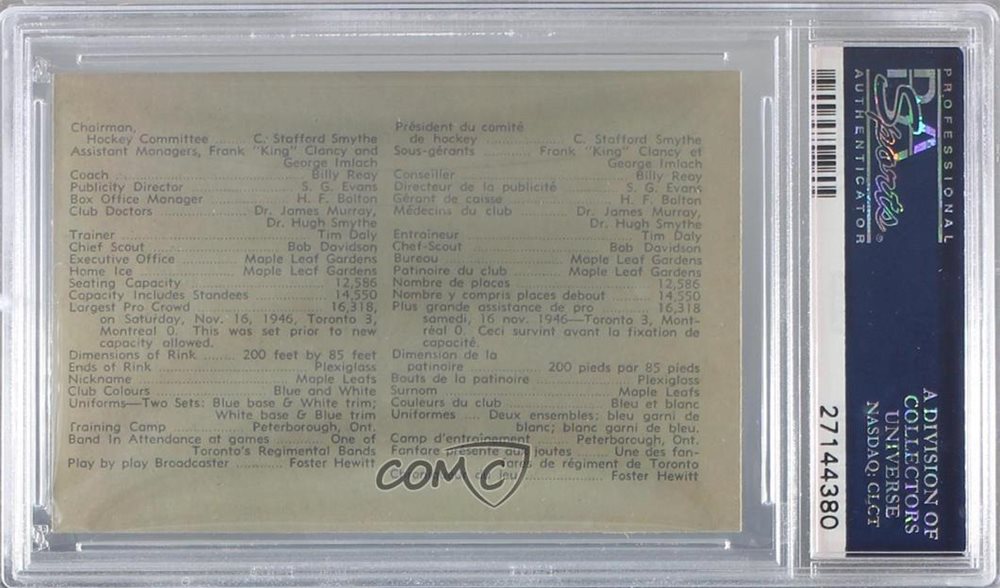 Chairman,
Hockey Committee ..... C. Stafford Smythe
Assistant Managers, Frank "King" Clancy and
George Imlach
Coach ..... Billy Reay
Publicity Director ..... S. G. Evans
Box Office Manager ..... H. F. Bolton
Club Doctors ..... Dr. James Murray,
Dr. Hugh Smythe
Trainer ..... Tim Daly
Chief Scout ..... Bob Davidson
Executive Office ..... Maple Leaf Gardens
Home Ice ..... Maple Leaf Gardens
Seating Capacity ..... 12,586
Capacity Includes Standees ..... 14,550
Largest Pro Crowd ..... 16,318,
on Saturday, Nov. 16, 1946, Toronto 3,
Montreal 0. This was set prior to new
capacity allowed.
Dimensions of Rink ..... 200 feet by 85 feet
Ends of Rink ..... Plexiglass
Nickname ..... Maple Leafs
Club Colours ..... Blue and White
Uniforms—Two Sets: Blue base & White trim;
White base & Blue trim
Training Camp ..... Peterborough, Ont.
Band In Attendance at games ..... One of
Toronto's Regimental Bands
Play by play Broadcaster ..... Foster Hewitt
Président du comité
de hockey ..... C. Stafford Smythe
Sous-gérants ..... Frank "King" Clancy et
George Imlach
Conseiller ..... Billy Reay
Directeur de la publicité ..... S. G. Evans
Gérant de caisse ..... H. F. Bolton
Médecins du club ..... Dr. James Murray,
Dr. Hugh Smythe
Entraineur ..... Tim Daly
Chef-Scout ..... Bob Davidson
Bureau ..... Maple Leaf Gardens
Patinoire du club ..... Maple Leaf Gardens
Nombre de places ..... 12,586
Nombre y compris places debout ..... 14,550
Plus grande assistance de pro ..... 16,318
samedi, 16 nov. 1946—Toronto 3, Mont-
réal 0. Ceci survint avant la fixation de
capacité.
Dimension de la
patinoire ..... 200 pieds par 85 pieds
Bouts de la patinoire ..... Plexiglass
Surnom ..... Maple Leafs
Couleurs du club ..... Bleu et blanc
Uniformes ..... Deux ensembles: bleu garni de
blanc; blanc garni de bleu.
Camp d'entrainement ..... Peterborough, Ont.
Fanfare présente aux joutes ..... Une des fan-
fares de régiment de Toronto
jeu ..... Foster Hewitt
COMC
PROFESSIONAL
PSA
Sports®
AUTHENTICATOR
A DIVISION OF
COLLECTORS
UNIVERSE
NASDAQ: CLCT
27144380